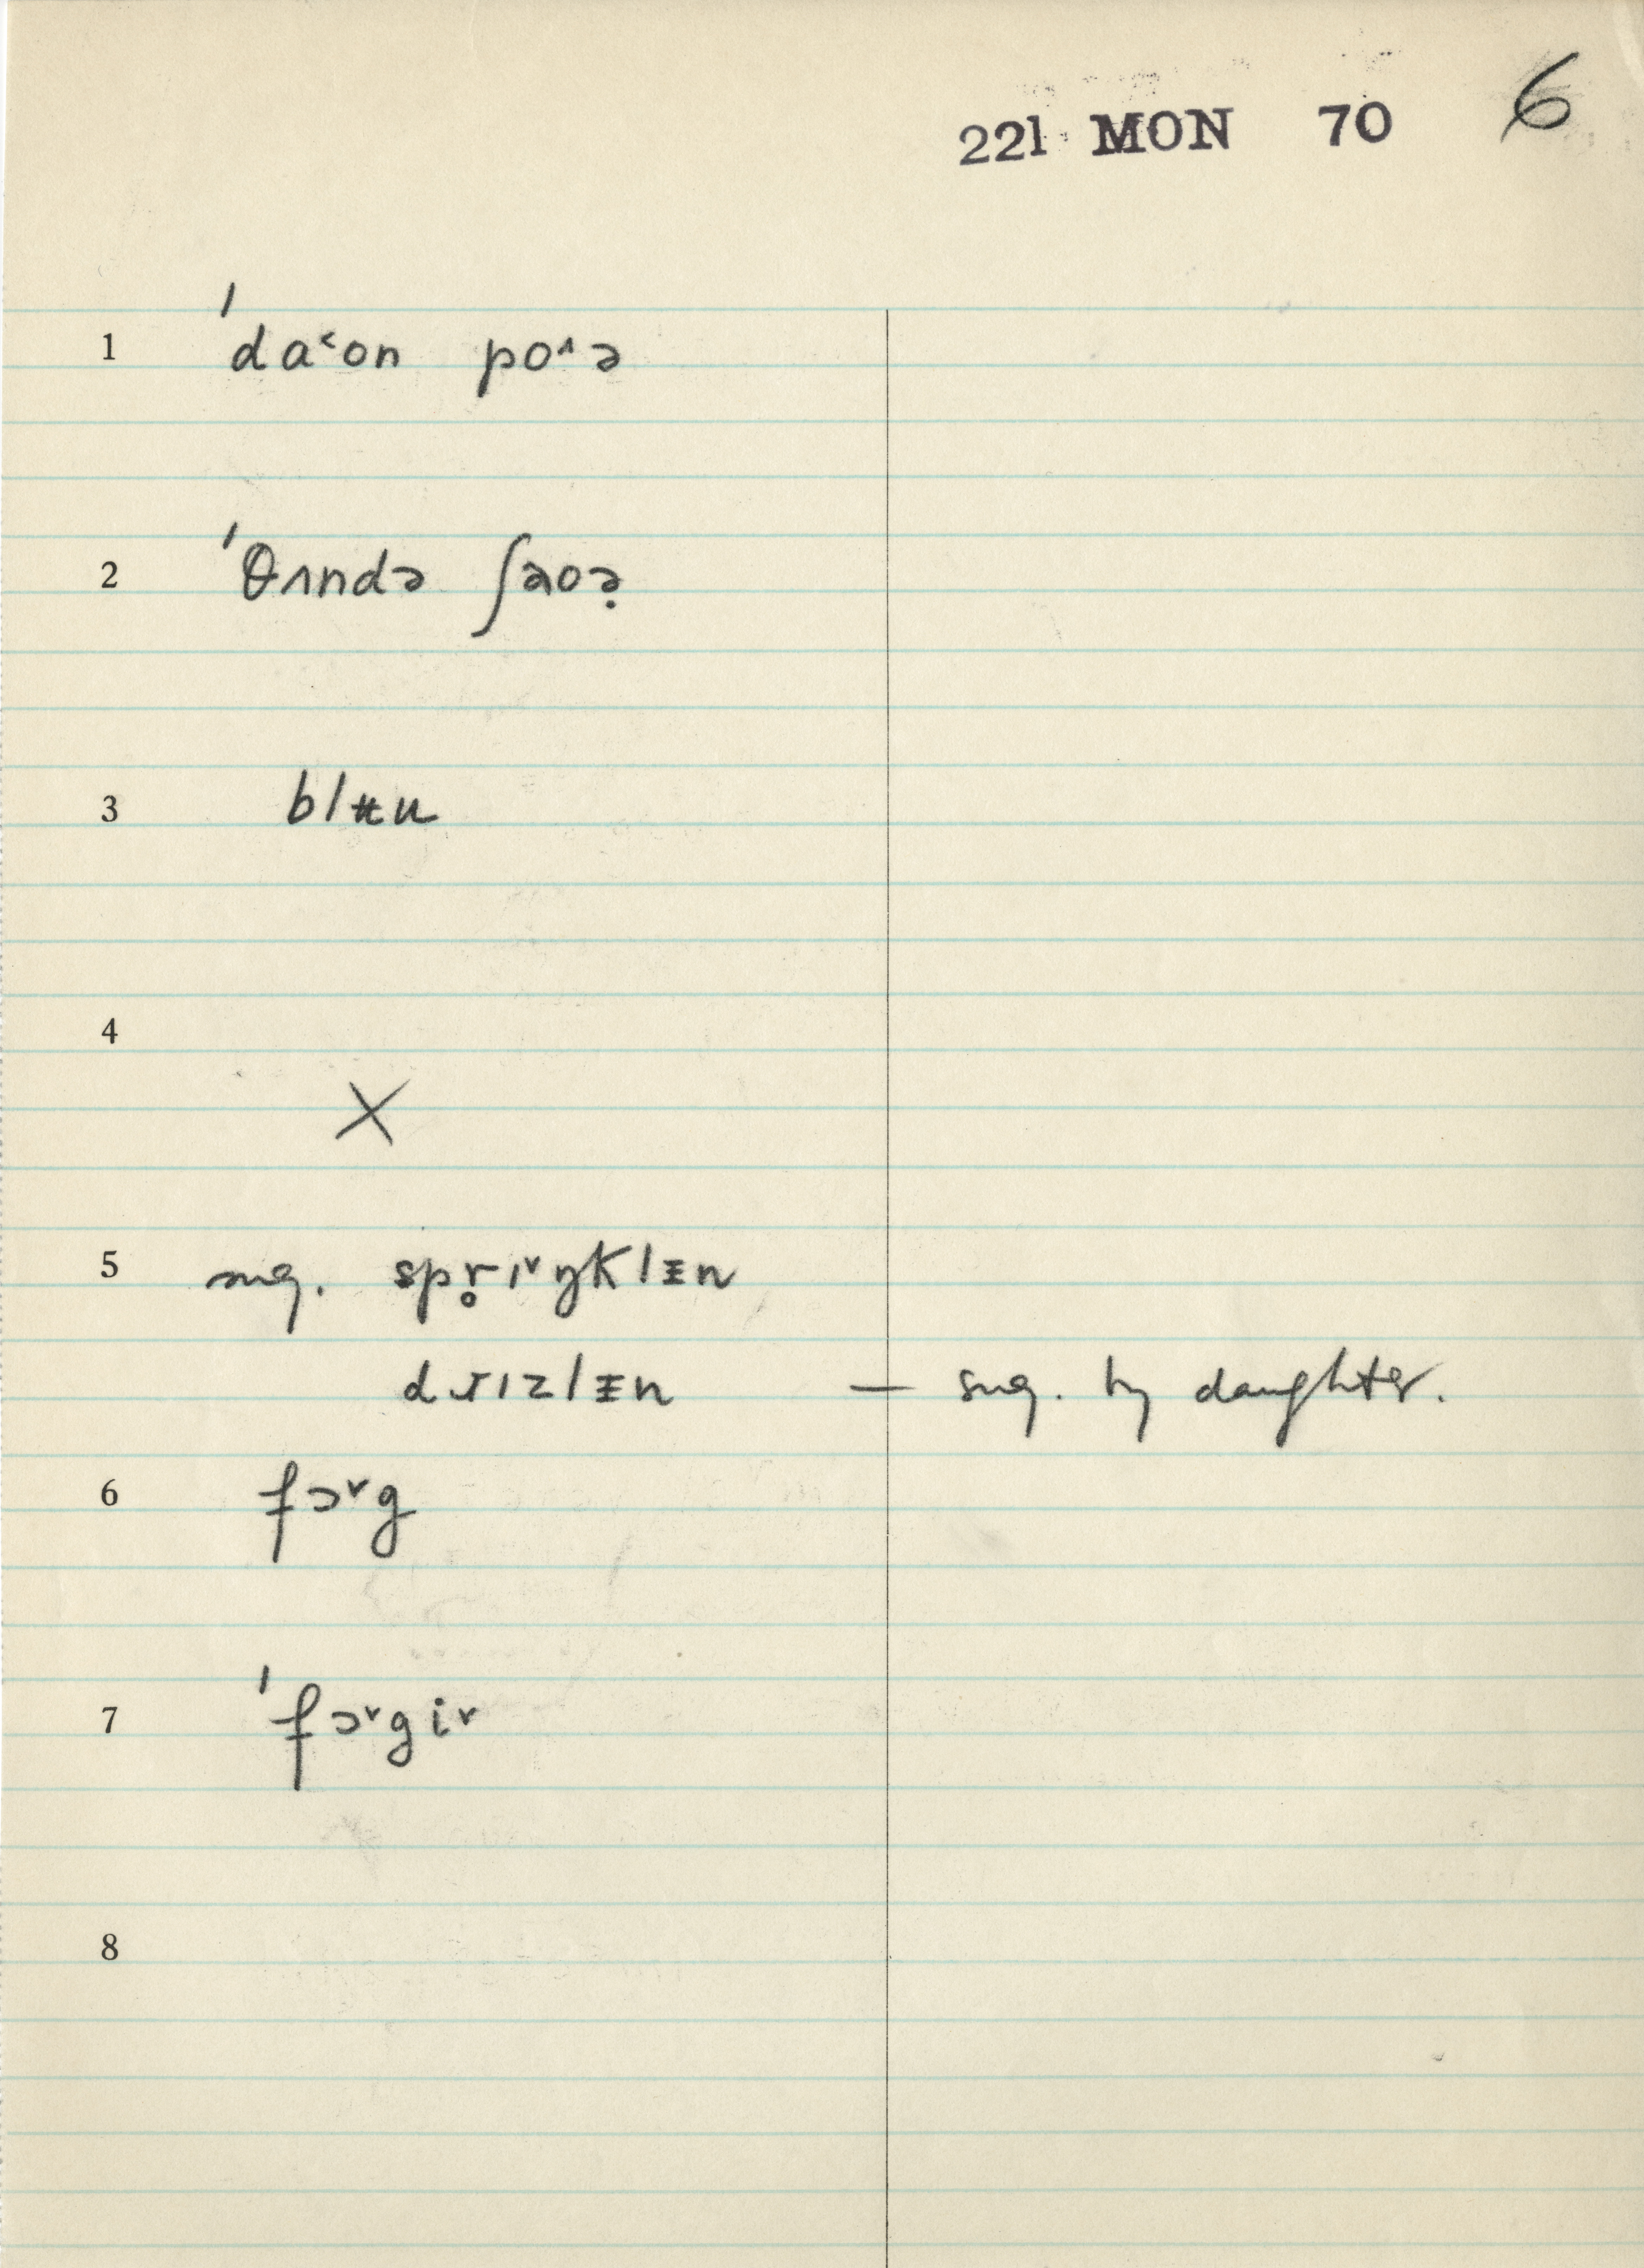 221 MON 70 6
1 ˈda˂on po˄ə
2 ˈθʌndə ʃaoə̣
3 blʉu
4 X
5 sug. spr̥ɪ˅ŋklɪ̵n
drɪzlɪ̵n — sug. by daughter.
6 fɔ˅g
7 ˈfɔ˅gi˅
8